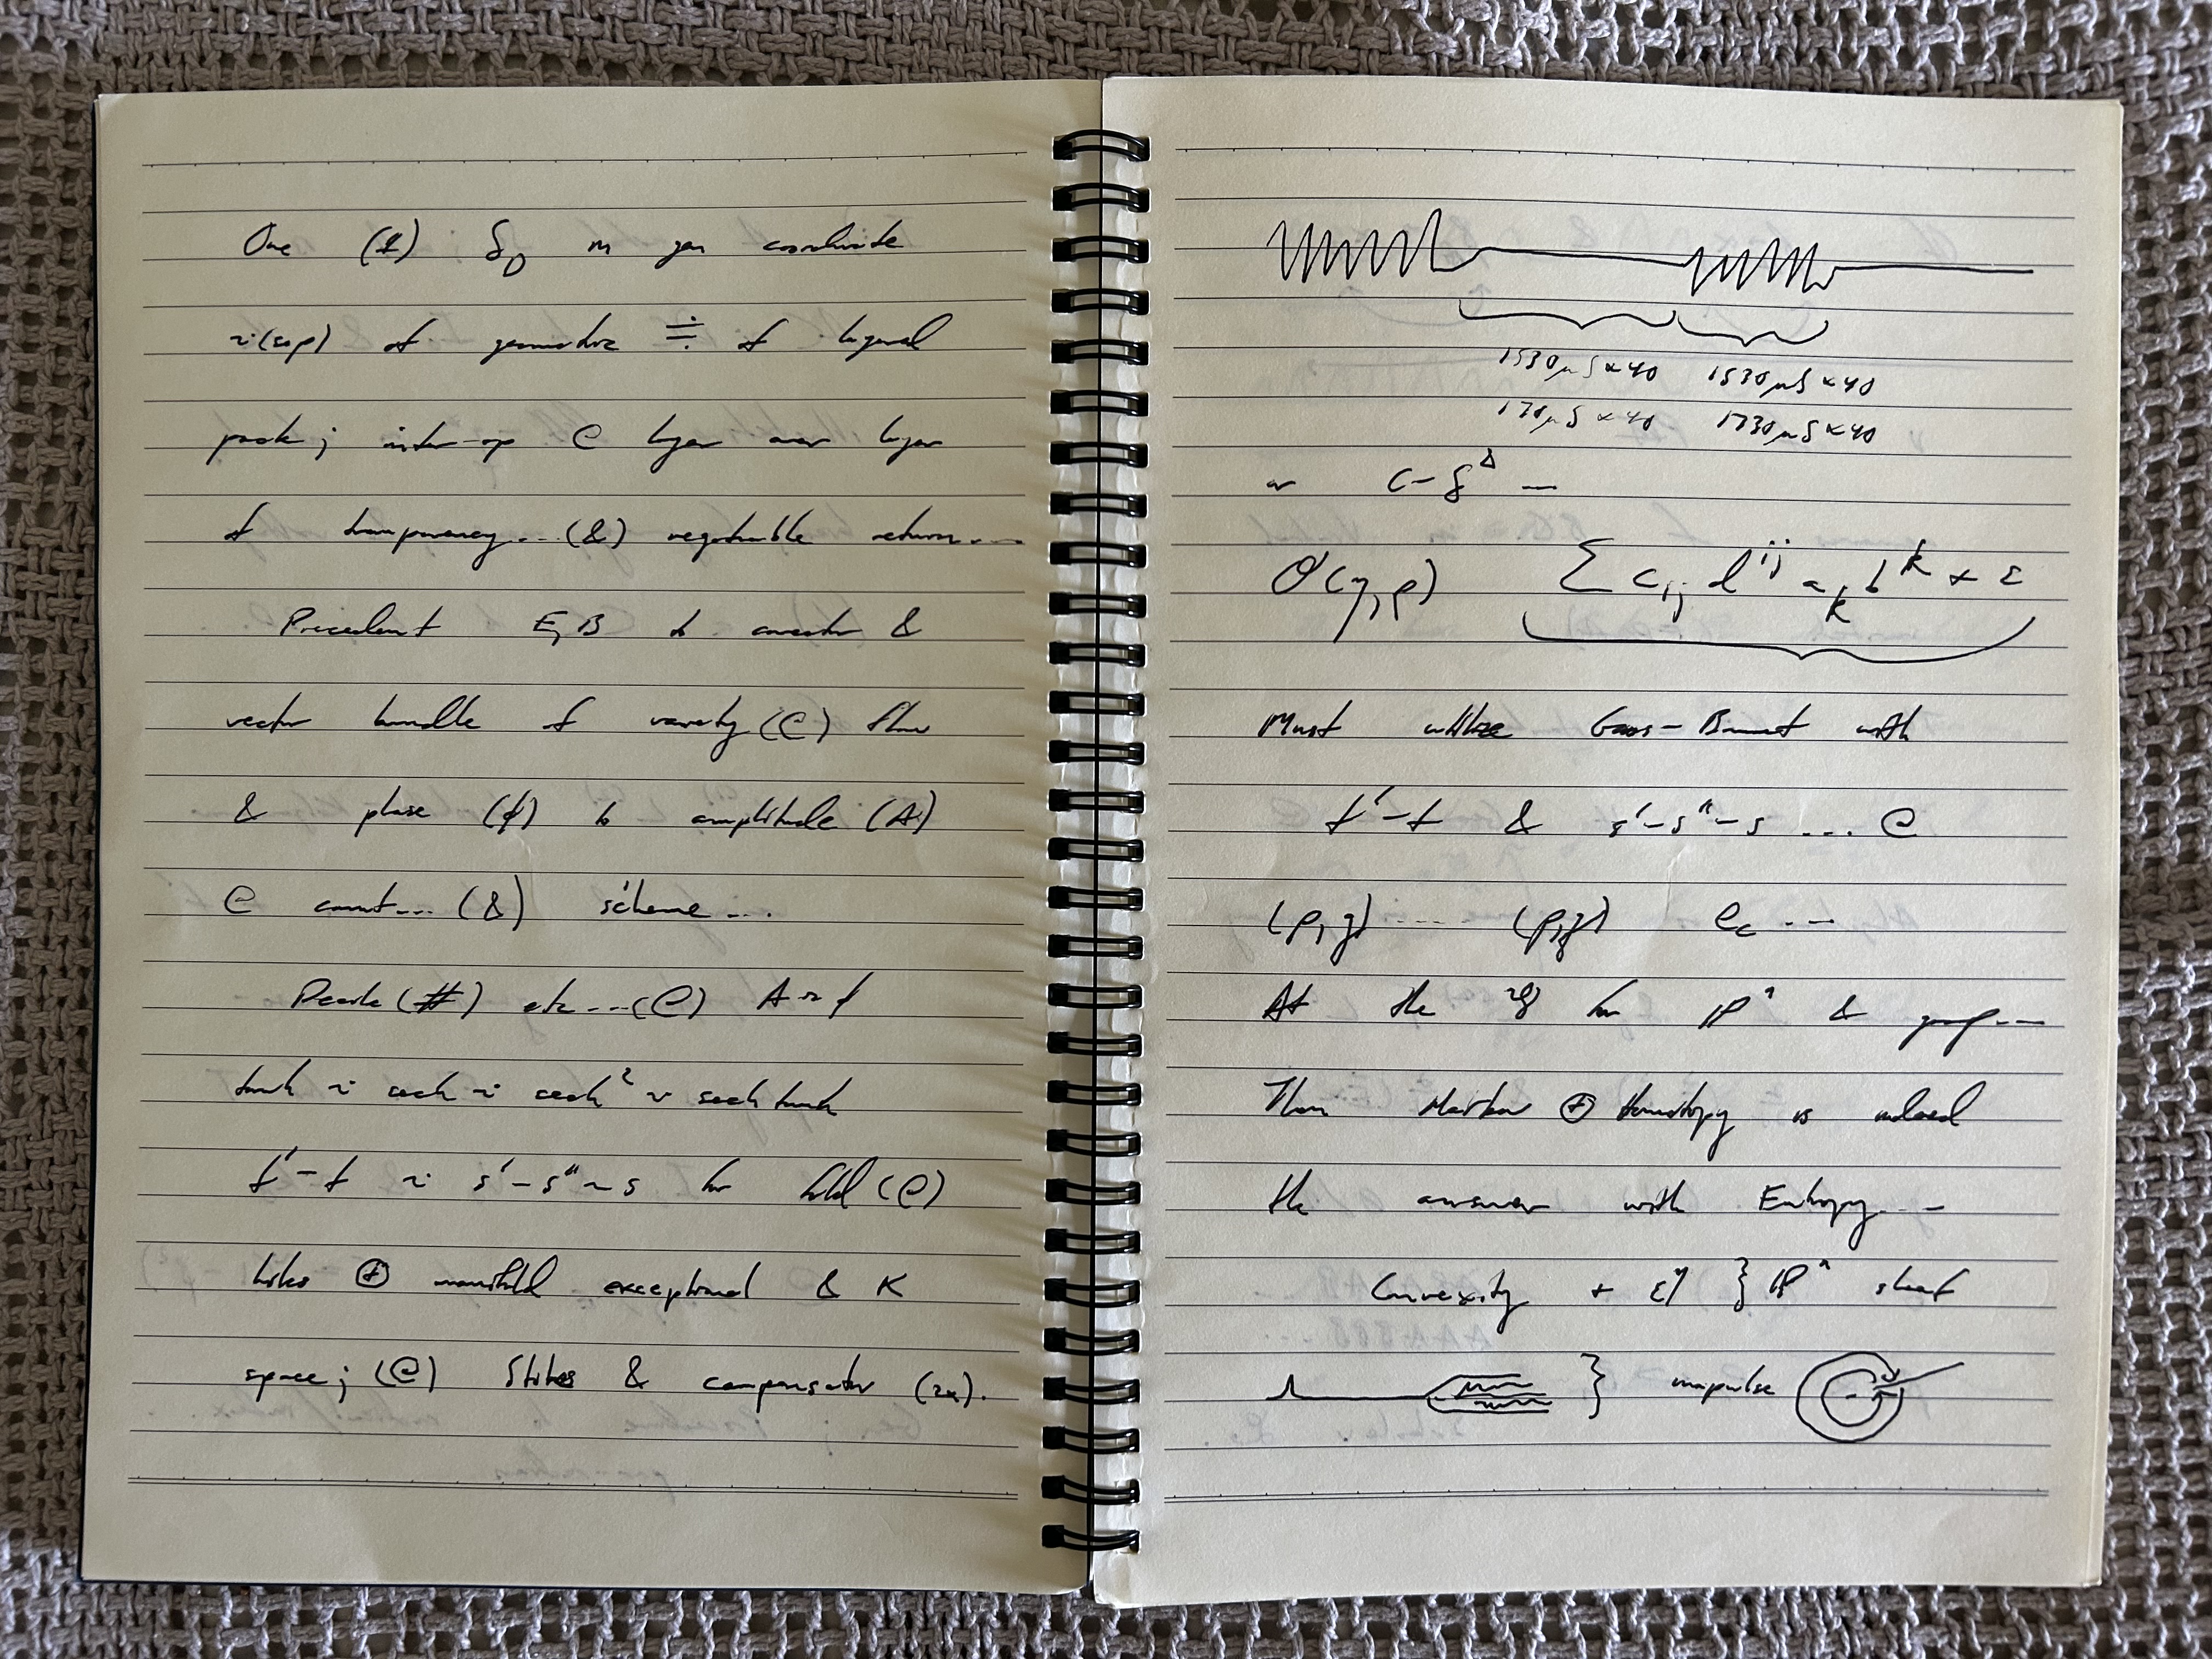 One (1) δ_D in gen coordinate
of geometric ≑ of
; inter-op @ layer over layer
of transparency... (&) negotiable return....
Precedent E, B to &
vector bundle of variety (@) flow
& phase (ϕ) to amplitude (A)
@ const... (&) scheme...
(#) etc...(@) A ~ ϕ
tanh ~ sech ~ sech² ~ sech tanh
t' - t ~ s' - s'' ~ s for (@)
holes ⊕ manifold exceptional & K
space; (@) Stokes & compensator (2x).
1530μS x 40 1530μS x 40
170μS x 40 1730μS x 40
or C - δ^Δ —
O(η, ρ) Σ c_ij d^ij a_k b^k + ε
Must utilize Gauss-Bonnet with
t' - t & s' - s'' - s ... @
(ρ, g) .... (ρ, g) e_c ...
At the for ℙ^n &
Then Markov ⊕ Homotopy is indeed
the answer with Entropy...
Convexity + } ℙ^n sheaf
} impulse